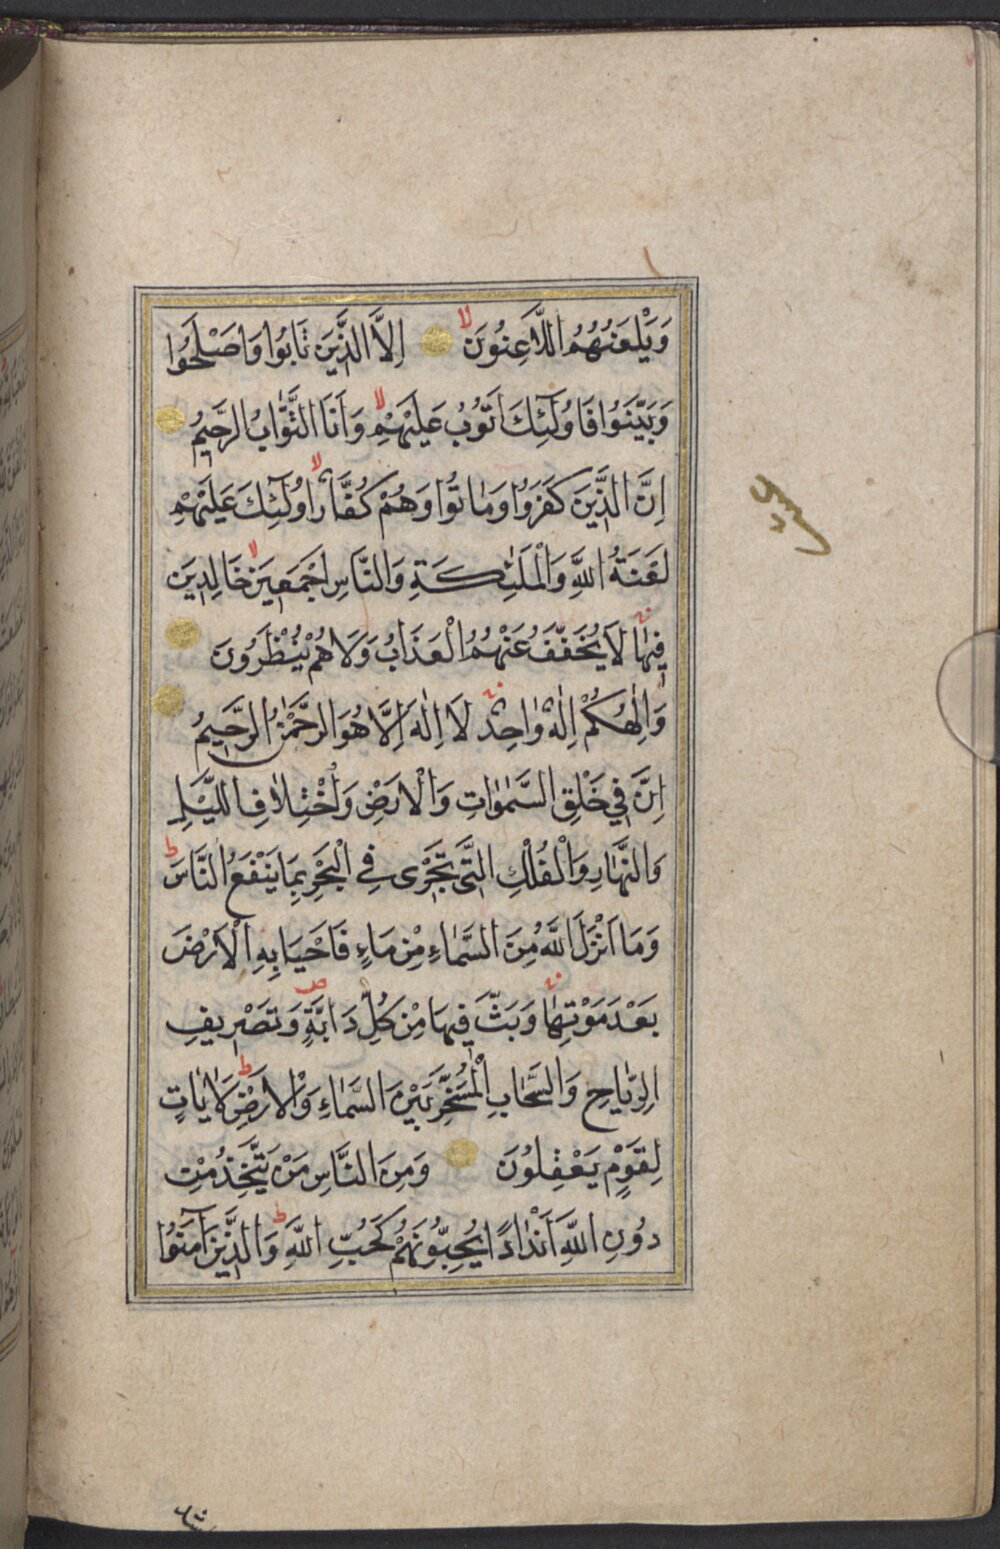 وَيَلْعَنُهُمُ اللَّاعِنُونَ لا اِلَّا الَّذِينَ تَابُوا وَاَصْلَحُوا
وَبَيَّنُوا فَاُولٰٓئِكَ اَتُوبُ عَلَيْهِمْ لا وَاَنَا التَّوَّابُ الرَّحِيمُ
اِنَّ الَّذِينَ كَفَرُوا وَمَاتُوا وَهُمْ كُفَّارٌ لا اُولٰٓئِكَ عَلَيْهِمْ
لَعْنَةُ اللّٰهِ وَالْمَلٰٓئِكَةِ وَالنَّاسِ اَجْمَعِينَ لا خَالِدِينَ
فِيهَا لَا يُخَفَّفُ عَنْهُمُ الْعَذَابُ وَلَا هُمْ يُنْظَرُونَ
وَاِلٰهُكُمْ اِلٰهٌ وَاحِدٌ لَا اِلٰهَ اِلَّا هُوَ الرَّحْمٰنُ الرَّحِيمُ
اِنَّ فِي خَلْقِ السَّمٰوَاتِ وَالْاَرْضِ وَاخْتِلَافِ اللَّيْلِ
وَالنَّهَارِ وَالْفُلْكِ الَّتِي تَجْرِي فِي الْبَحْرِ بِمَا يَنْفَعُ النَّاسَ ط
وَمَا اَنْزَلَ اللّٰهُ مِنَ السَّمَاءِ مِنْ مَاءٍ فَاَحْيَا بِهِ الْاَرْضَ
بَعْدَ مَوْتِهَا وَبَثَّ فِيهَا مِنْ كُلِّ دَابَّةٍ ص وَتَصْرِيفِ
الرِّيَاحِ وَالسَّحَابِ الْمُسَخَّرِ بَيْنَ السَّمَاءِ وَالْاَرْضِ ط لَاٰيَاتٍ
لِقَوْمٍ يَعْقِلُونَ وَمِنَ النَّاسِ مَنْ يَتَّخِذُ مِنْ
دُونِ اللّٰهِ اَنْدَادًا يُحِبُّونَهُمْ كَحُبِّ اللّٰهِ ط وَالَّذِينَ آمَنُوا